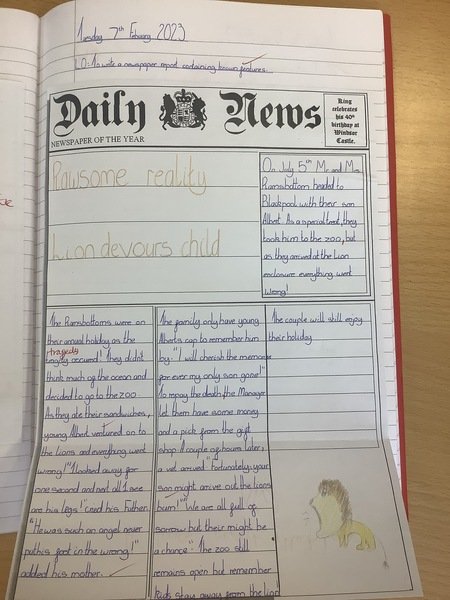 Tuesday 7th Febuary 2023
LO: To write a newspaper report containing known features.
Daily News
NEWSPAPER OF THE YEAR
King
celebrates
his 40th
birthday at
Windsor
Castle.
Pawsome reality
Lion devours child
On July 5th Mr. and Mrs.
Ramsbottom headed to
Blackpool with their son
Albert. As a special treat, they
took him to the zoo, but
as they arrived at the Lion
enclosure everything went
wrong!
The Ramsbottoms were on
their annual holiday as the
tragedy
occured! They didn't
think much of the ocean and
decided to go to the zoo.
As they ate their sandwiches,
young Albert ventured on to
the lions and everything went
wrong! "I looked away for
one second and next all I see
are his legs!" cried his father.
"He was such an angel never
put his foot in the wrong!"
added his mother.
The family only have young
Alberts cap to remember him
by. "I will cherish the memories
for ever my only son gone!"
To repay the death, the Manager
let them have some money
and a pick from the gift
shop. A couple of hours later,
a vet arrived. "Fortunately, your
son might arrive out the lions
bum!" "We are all full of
sorrow but their might be
a chance". The zoo still
remains open but remember
kids stay away from the lion
The couple will still enjoy
their holiday.